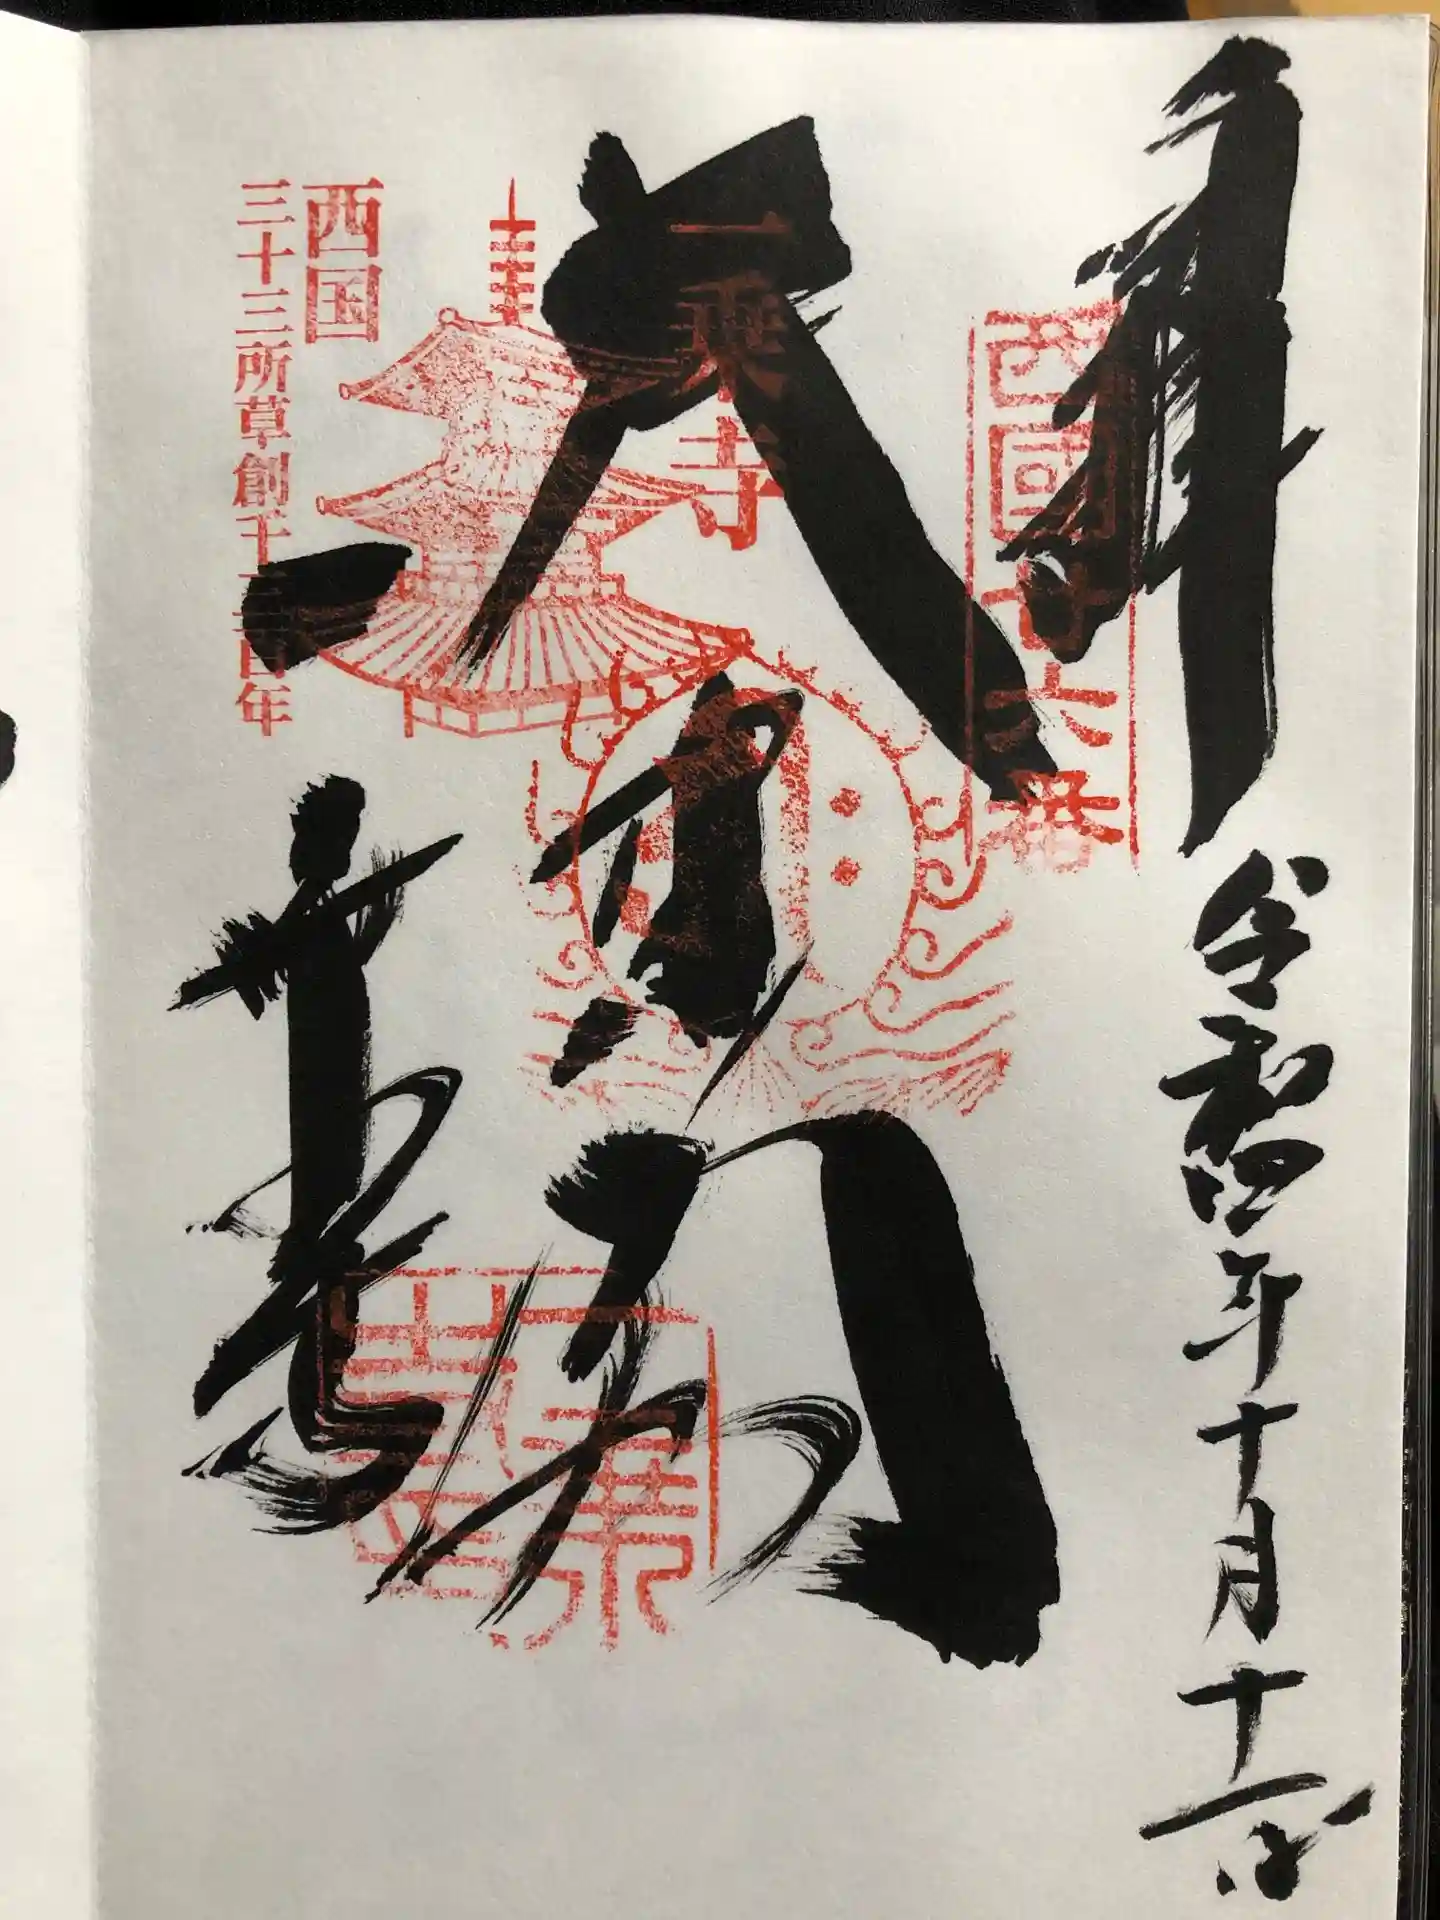 奉拝
令和四年十月十一日
西國廿六番
大悲閣
一乗寺
一乗寺
西国
三十三所草創千三百年